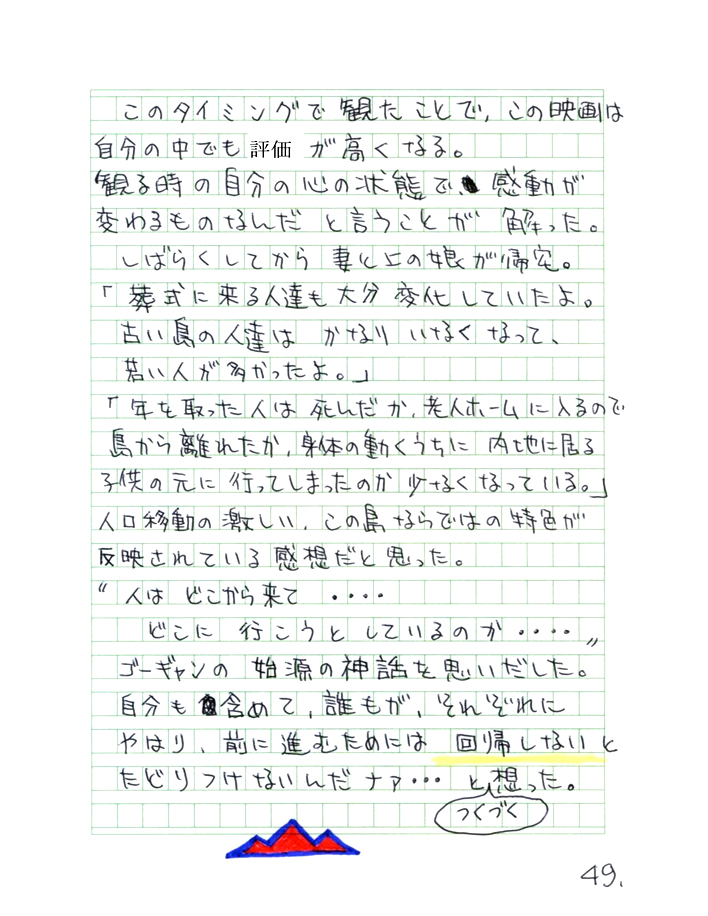 このタイミングで観たことで、この映画は
自分の中でも評価が高くなる。
観る時の自分の心の状態で、感動が
変わるものなんだと言うことが解った。
しばらくしてから妻と上の娘が帰宅。
「葬式に来る人達も大分変化していたよ。
古い島の人達はかなりいなくなって、
若い人が多かったよ。」
「年を取った人は死んだか、老人ホームに入るので
島から離れたか、身体の動くうちに内地に居る
子供の元に行ってしまったのか少なくなっている。」
人口移動の激しい、この島ならではの特色が
反映されている感想だと思った。
〝人はどこから来て・・・・
どこに行こうとしているのか・・・・〟
ゴーギャンの始源の神話を思いだした。
自分も含めて、誰もが、それぞれに
やはり、前に進むためには回帰しないと
たどりつけないんだナァ・・・とつくづく想った。
49.